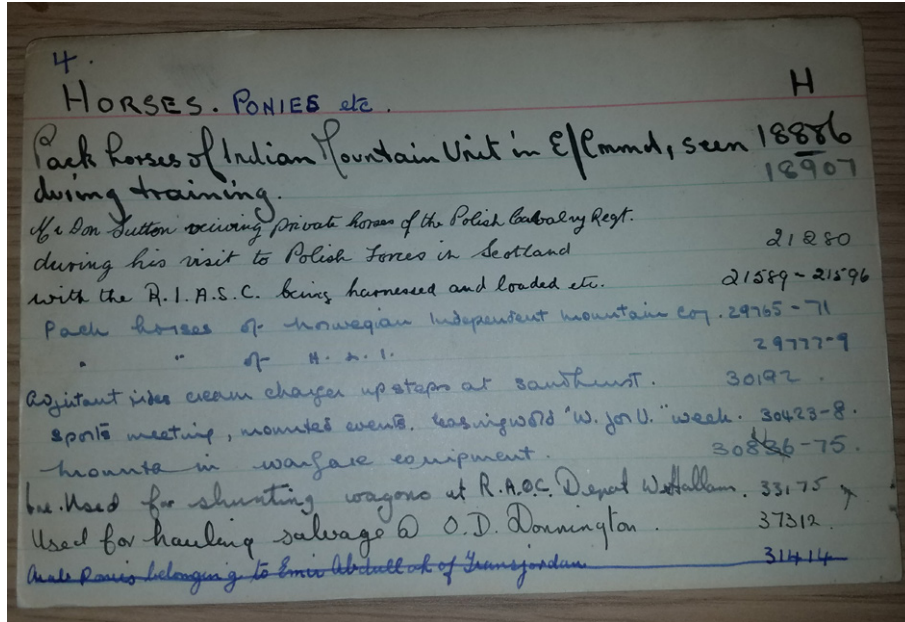 4.
HORSES. PONIES etc. H
Pack horses of Indian Mountain Unit in E/Cmmd, seen 18886
during training. 18907
Mr Don Sutton viewing private horses of the Polish Cavalry Regt.
during his visit to Polish Forces in Scotland 21280
with the R.I.A.S.C. being harnessed and loaded etc. 21589-21596
Pack horses of Norwegian Independent mountain coy. 29765-71
" " of H.L.I. 29777-9
Adjutant rides cream charger up steps at Sandhurst. 30192.
Sports meeting, mounted events. Easingwold "W. for V." week. 30423-8.
mounts in warfare equipment. 30836-75.
Used for shunting wagons at R.A.O.C. Depot W. Hallam. 33175
Used for hauling salvage @ O.D. Donnington. 37312.
Arab Ponies belonging to Emir Abdullah of Transjordan 31414